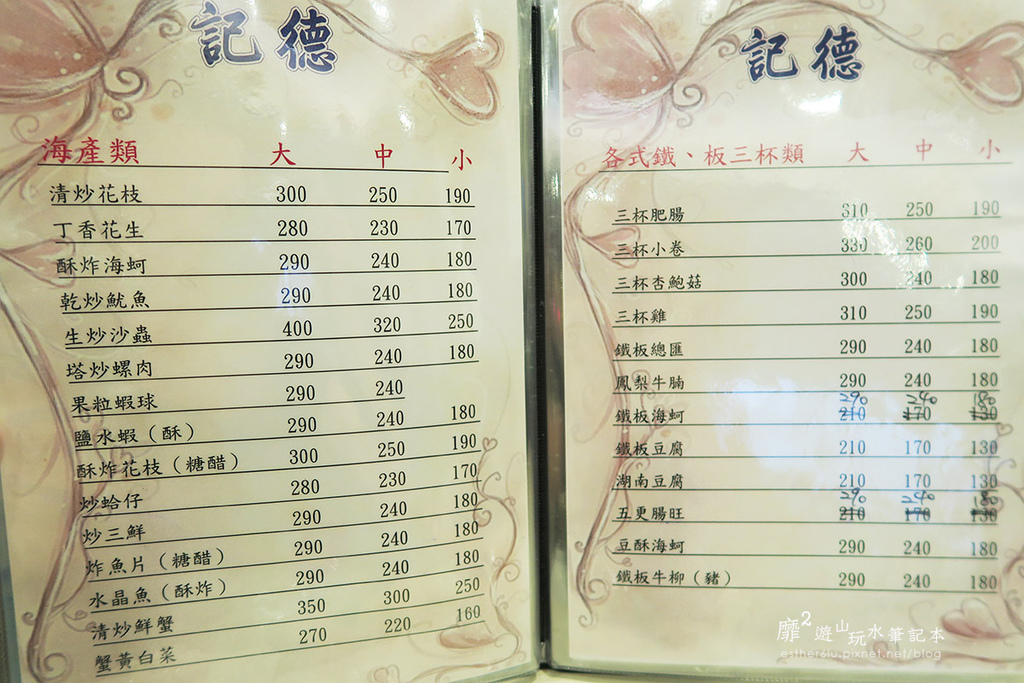 記德
海產類 大 中 小
清炒花枝 300 250 190
丁香花生 280 230 170
酥炸海蚵 290 240 180
乾炒魷魚 290 240 180
生炒沙蟲 400 320 250
塔炒螺肉 290 240 180
果粒蝦球 290 240
鹽水蝦（酥） 290 240 180
酥炸花枝（糖醋） 300 250 190
炒蛤仔 280 230 170
炒三鮮 290 240 180
炸魚片（糖醋） 290 240 180
水晶魚（酥炸） 290 240 180
清炒鮮蟹 350 300 250
蟹黃白菜 270 220 160
記德
各式鐵、板三杯類 大 中 小
三杯肥腸 310 250 190
三杯小卷 330 260 200
三杯杏鮑菇 300 240 180
三杯雞 310 250 190
鐵板總匯 290 240 180
鳳梨牛腩 290 240 180
290 240 180
鐵板海蚵 210 170 130
鐵板豆腐 210 170 130
湖南豆腐 210 170 130
290 240 180
五更腸旺 210 170 130
豆酥海蚵 290 240 180
鐵板牛柳（豬） 290 240 180
靡2遊山玩水筆記本
esther6lu.pixnet.net/blog